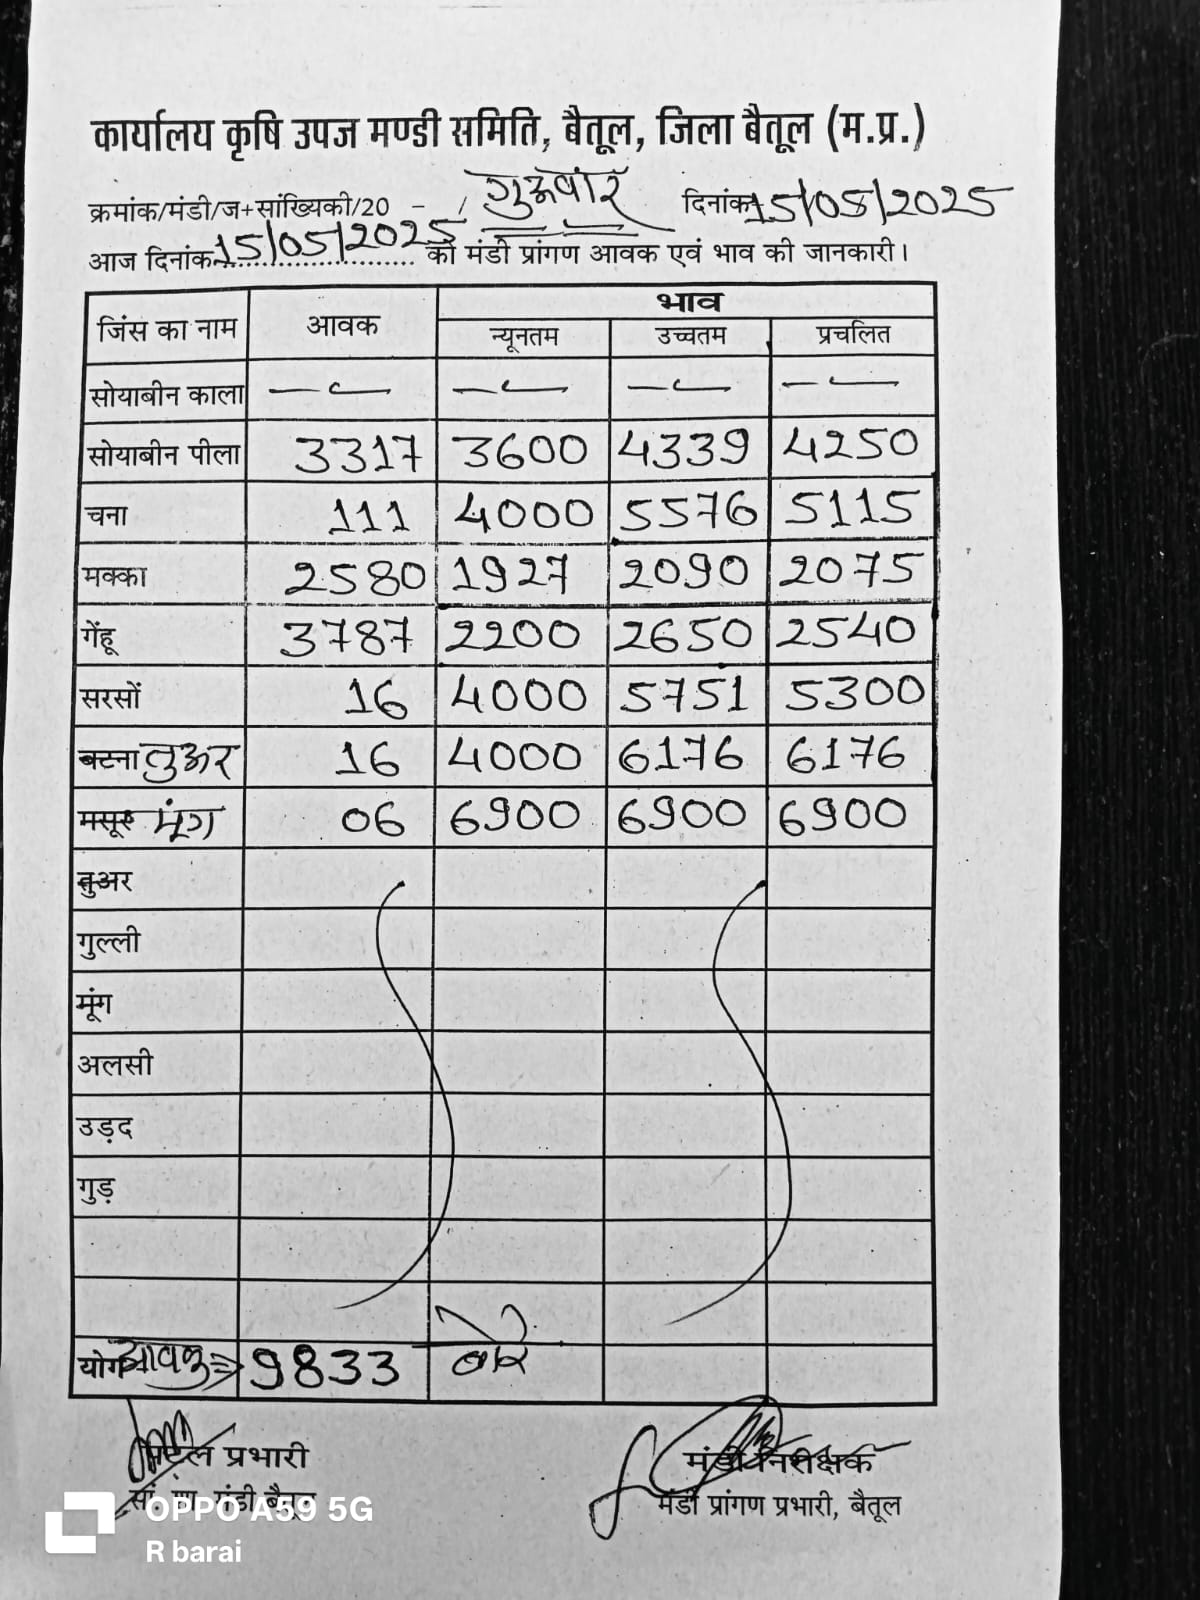 कार्यालय कृषि उपज मण्डी समिति, बैतूल, जिला बैतूल (म.प्र.)
क्रमांक/मंडी/ज+सांख्यिकी/20 - / गुरूवार दिनांक 15/05/2025
आज दिनांक 15/05/2025 को मंडी प्रांगण आवक एवं भाव की जानकारी।
जिंस का नाम आवक भाव
न्यूनतम उच्चतम प्रचलित
सोयाबीन काला — — — —
सोयाबीन पीला 3317 3600 4339 4250
चना 111 4000 5576 5115
मक्का 2580 1927 2090 2075
गेंहू 3787 2200 2650 2540
सरसों 16 4000 5751 5300
बटना तुअर 16 4000 6176 6176
मसूर मूंग 06 6900 6900 6900
तुअर
गुल्ली
मूंग
अलसी
उड़द
गुड़
योग आवक 9833 बोरे
प्रभारी मंडी निरीक्षक
मंडी बैतूल मंडी प्रांगण प्रभारी, बैतूल
OPPO A59 5G
R barai